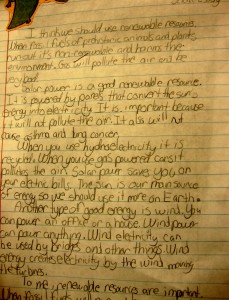 I think we should use renewable resources.
When fossil fuels of prehistoric animals and plants
run out it's non-renewable and harms the
environment. Gas will pollute the air and be
very bad.
Solar power is a good renewable resource.
It is powered by panels that convert the sun's
energy into electricity. It is important because
it will not pollute the air. It also will not
cause asthma and lung cancer.
When you use hydroelectricity it is
recycled. When you use gas powered cars it
pollutes the air. Solar power saves you on
your electric bills. The sun is our main source
of energy so we should use it more on Earth.
Another type of good energy is wind. You
can power an office or a house. Wind power
can power anything. Wind electricity can
be used by bridges and other things. Wind
energy creates electricity by the wind moving
the turbines.
To me, renewable resources are important.
When fossil fuels